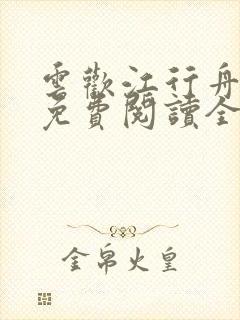 雲歡江行舟
免費閱讀全
金帛火皇